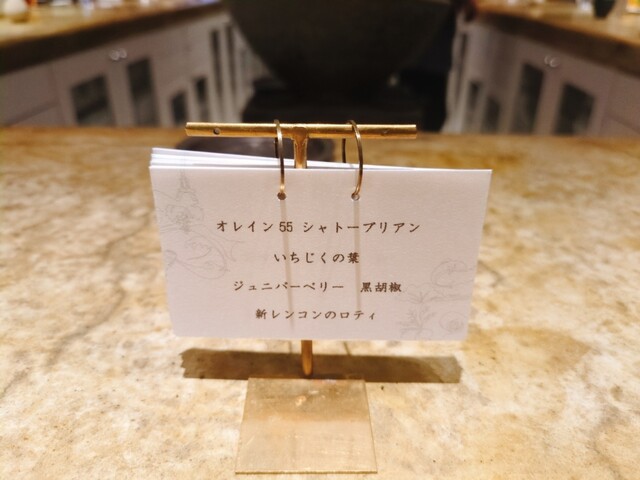 オレイン55 シャトーブリアン
いちじくの葉
ジュニパーベリー 黒胡椒
新レンコンのロティ